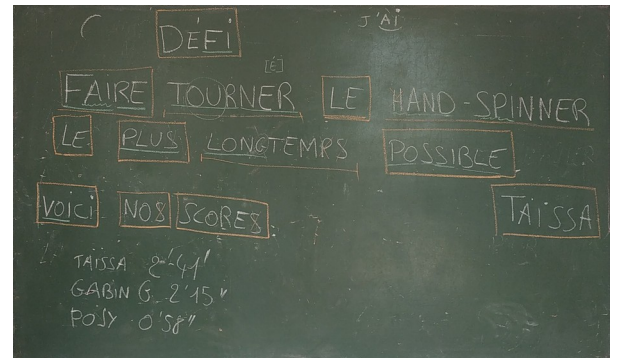 J'AI
DÉFI
[É]
FAIRE TOURNER LE HAND-SPINNER
LE PLUS LONGTEMPS POSSIBLE
VOICI NOS SCORES
TAÏSSA
TAÏSSA 2'41'
GABIN G. 2'15"
POSY 0'58"